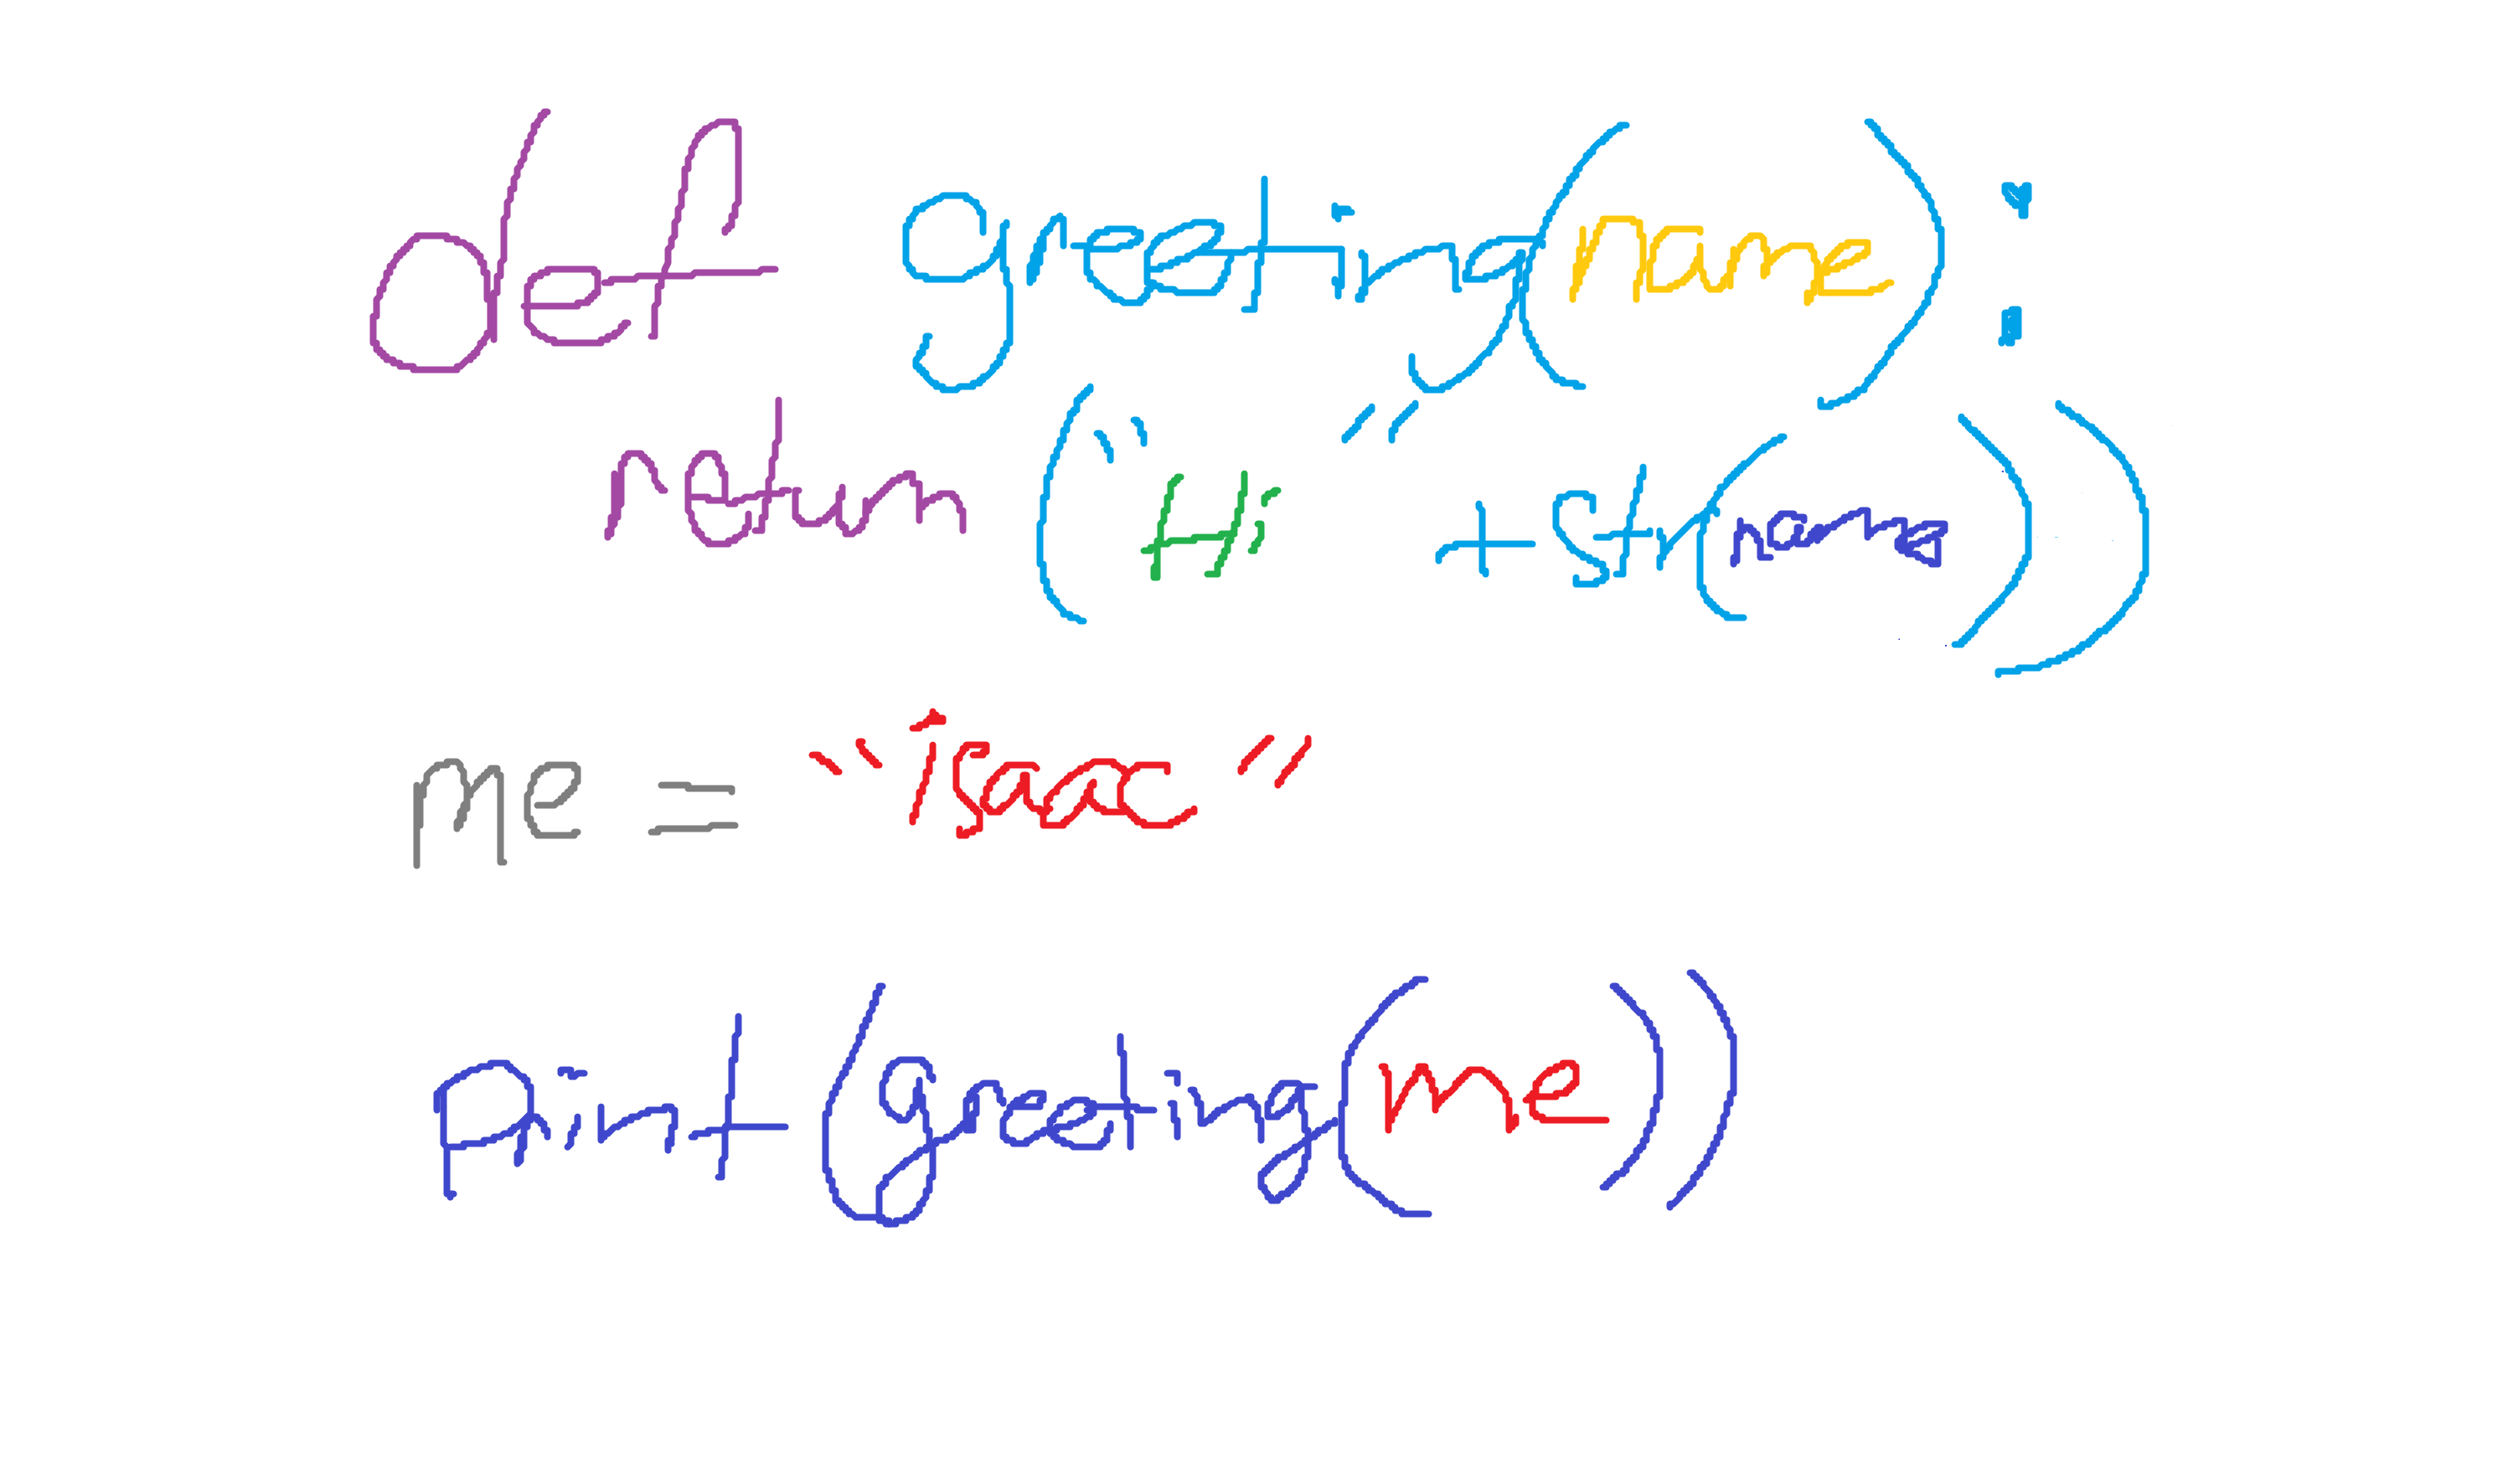 def greeting(name):
return ("Hi " + str(name))
me = "isaac"
print(greeting(me))